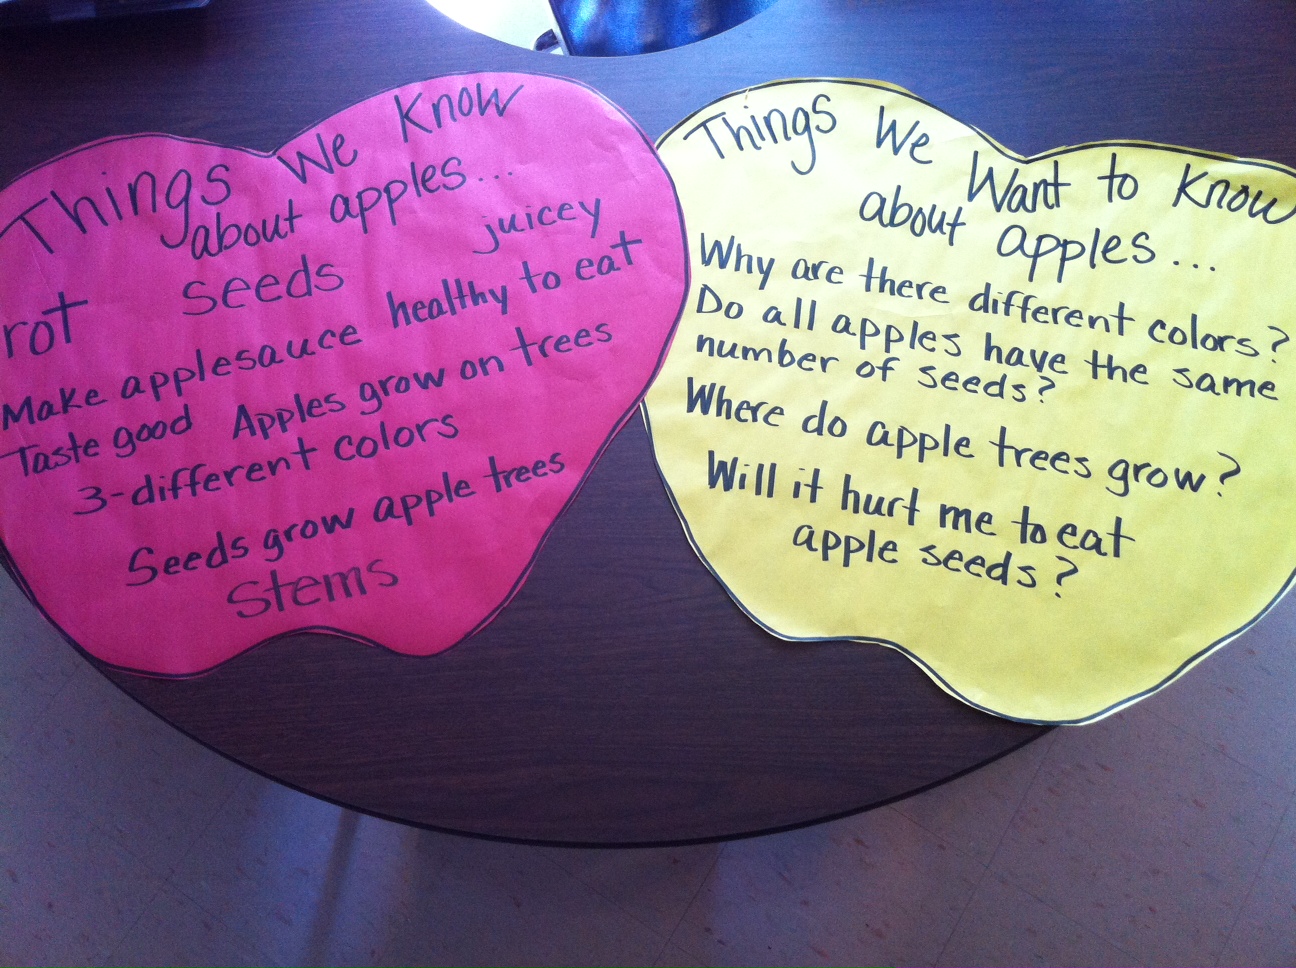 Things We Know
about apples...
juicey
rot seeds
Make applesauce healthy to eat
Taste good Apples grow on trees
3-different colors
Seeds grow apple trees
Stems
Things We
Want to Know
about apples...
Why are there different colors?
Do all apples have the same
number of seeds?
Where do apple trees grow?
Will it hurt me to eat
apple seeds?